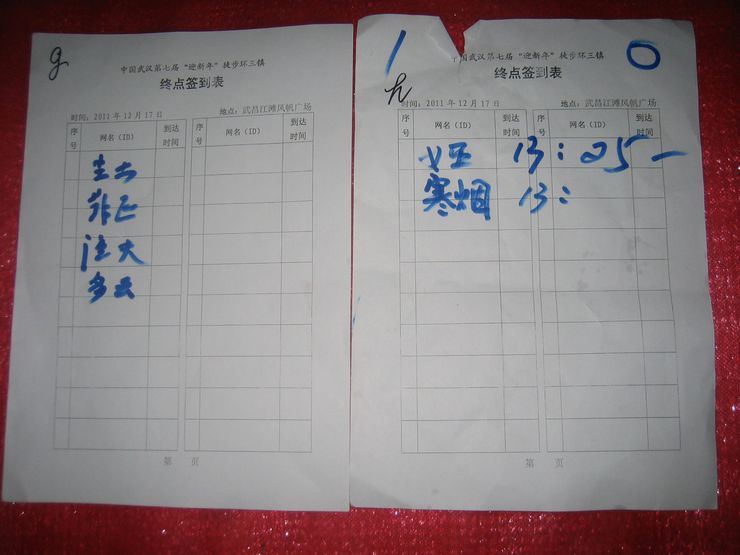 g
中国武汉第七届“迎新年”徒步环三镇
终点签到表
时间：2011 年 12 月 17 日 地点：武昌江滩风帆广场
序号 网名（ID） 到达时间 序号 网名（ID） 到达时间
多云
第 页
1 0
h
中国武汉第七届“迎新年”徒步环三镇
终点签到表
时间：2011 年 12 月 17 日 地点：武昌江滩风帆广场
序号 网名（ID） 到达时间 序号 网名（ID） 到达时间
13：25
寒烟 13：
第 页